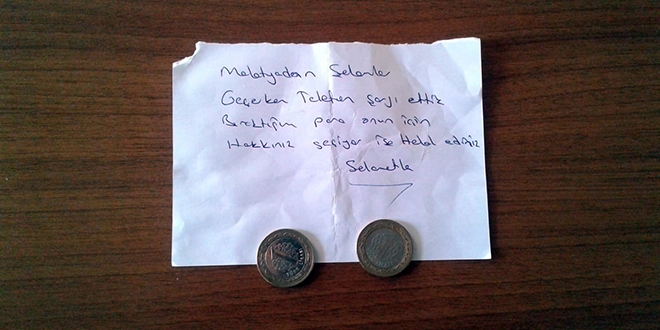 Malatyadan Selamlar
Geçerken Telefon şarj ettik
Bıraktığım para onun için
Hakkınız geçiyor ise Helal ediniz
Selametle